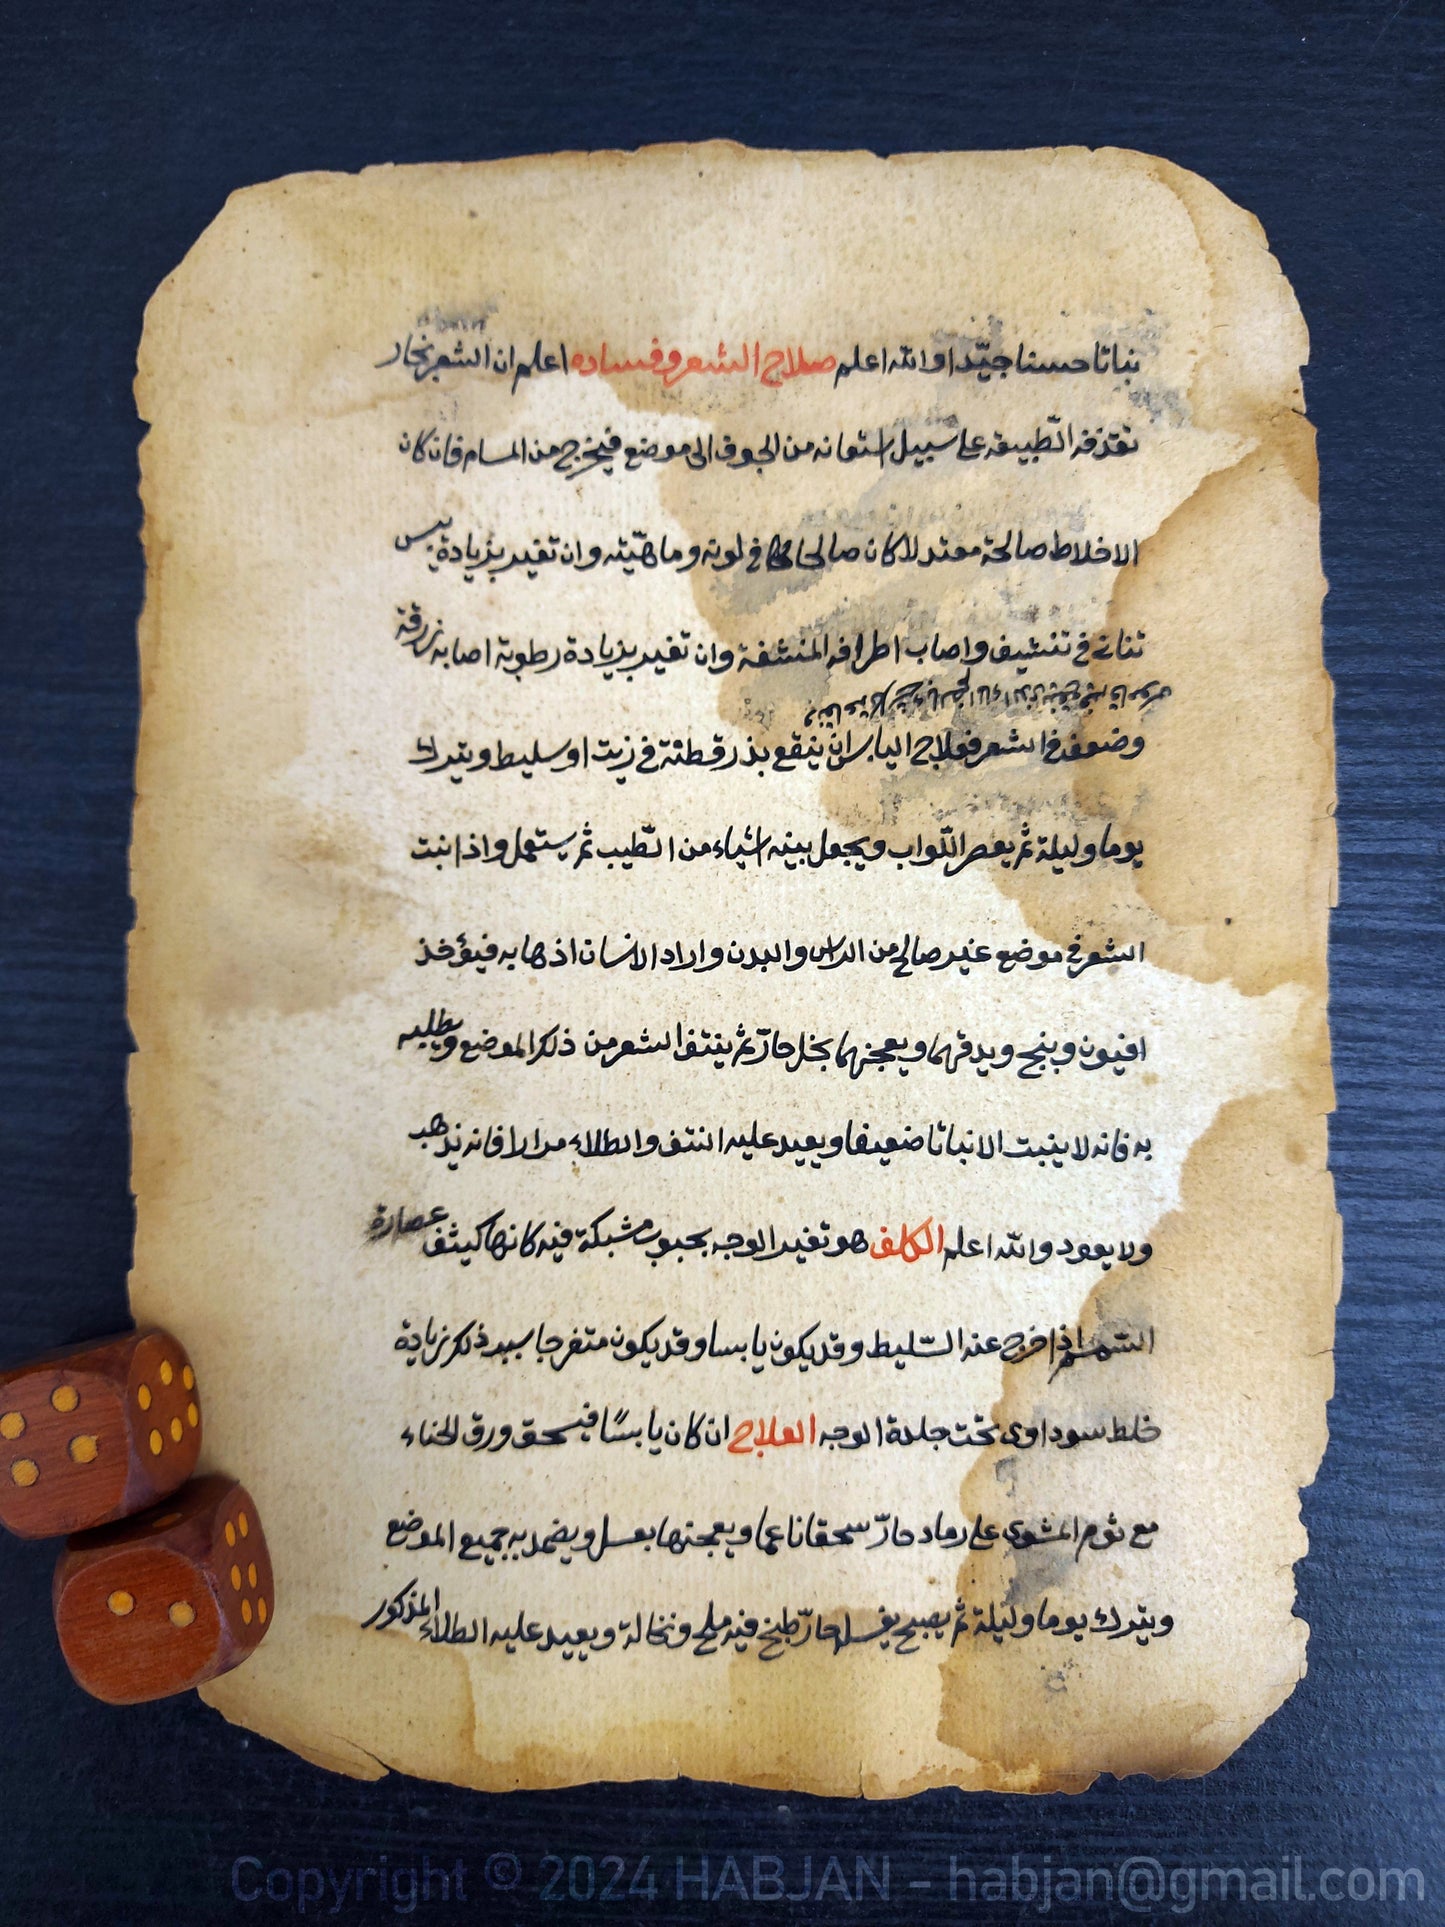 نباتا حسنا جيّدا والله اعلم صلاح الشعر وفساده اعلم ان الشعر بخار
تقذفه الطّبيعه على سبيل استغانه من الجوف الى موضع فيخرج من المسام فان كان
الاخلاط صالحة معتدلا كان صالحا في لونه وماهيّته وان تغير بزيادة يبس
تناثى في تنشيف واصاب اطرافه المنشفة وان تغير بزيادة رطوبة اصابه زرقة
وضعف في الشعر فعلاج اليابس ان ينقع بذر قطنة في زيت او سليط ويترك
يوما وليلة ثم يعصر اللّواب ويجعل بينه اشياء من الطّيب ثم يستعمل واذا نبت
الشعر في موضع غير صالح من الراس والبدن واراد الانسان اذهابه فيؤخذ
افيون وبنج ويدقهما ويعجنهما بخل حارّ ثم ينتف الشعر من ذلك الموضع ويطليه
به فانه لا ينبت الا نباتا ضعيفا ويعيد عليه النتف والطلاء مرارا فانه يذهب
ولا يعود والله اعلم الكلف هو تغير الوجه بحبوب مشبكة فيه كانها كيثف عصارة
السمسم اذا خرج عنه السّليط وقد يكون يابسا وقد يكون متفرجا سبب ذلك زيادة
خلط سوداوى تحت جلدة الوجه العلاج ان كان يابسًا فيسحق ورق الحناء
مع ثوم المشوى على رماد حارّ سحقا ناعما ويعجنها بعسل ويضمد به جميع الموضع
ويترك يوما وليلة ثم يصبح يغسل حارّ طبخ فيه ملح ونخالة ويعيد عليه الطلاء المذكور
Copyright © 2024 HABJAN - habjan@gmail.com